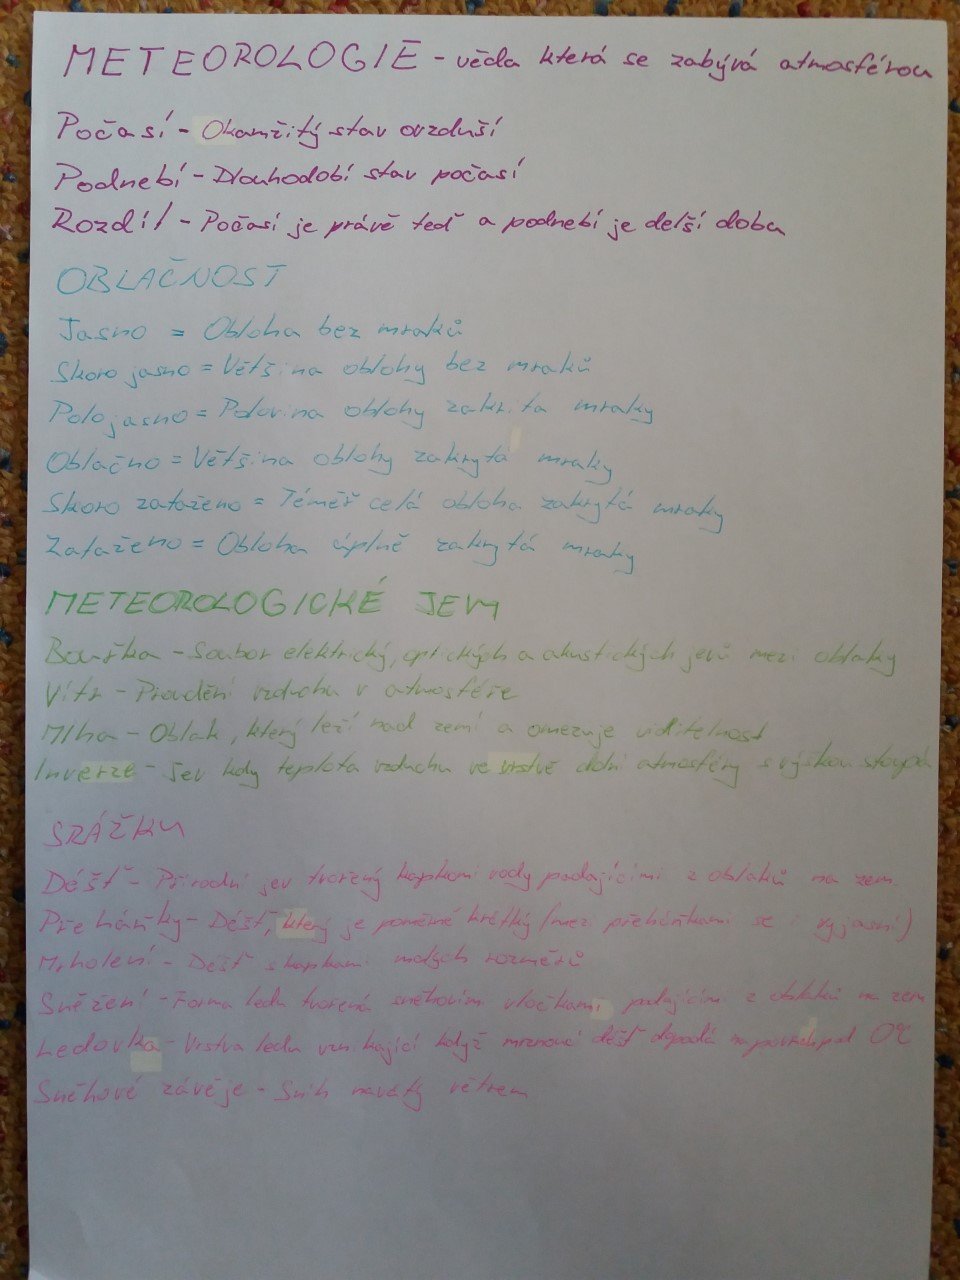 METEOROLOGIE - věda která se zabývá atmosférou
Počasí - Okamžitý stav ovzduší
Podnebí - Dlouhodobí stav počasí
Rozdíl - Počasí je právě teď a podnebí je delší doba
OBLAČNOST
Jasno = Obloha bez mraků
Skoro jasno = Většina oblohy bez mraků
Polojasno = Polovina oblohy zakrita mraky
Oblačno = Většina oblohy zakrytá mraky
Skoro zataženo = Téměř celá obloha zakrytá mraky
Zataženo = Obloha úplně zakrytá mraky
METEOROLOGICKÉ JEVY
Bouřka - Soubor elektrický, optických a akustických jevů mezi oblaky
Vítr - Proudění vzduchu v atmosféře
Mlha - Oblak, který leží nad zemí a omezuje viditelnost
Inverze - Jev kdy teplota vzduchu ve vrstvě dolní atmosféry s výškou stoupá
SRÁŽKY
Déšť - Přírodní jev tvořený kapkami vody padajícími z oblaků na zem
Přeháňky - Déšť, který je poměrně krátký (mezi přeháňkami se i vyjasní)
Mrholení - Déšť s kapkami malých rozměrů
Sněžení - Forma ledu tvořená sněhovími vločkami padajícími z oblaků na zem
Ledovka - Vrstva ledu vznikající když mrznoucí déšť dopadá na povrch pod 0°C
Sněhové závěje - Sníh navátý větrem